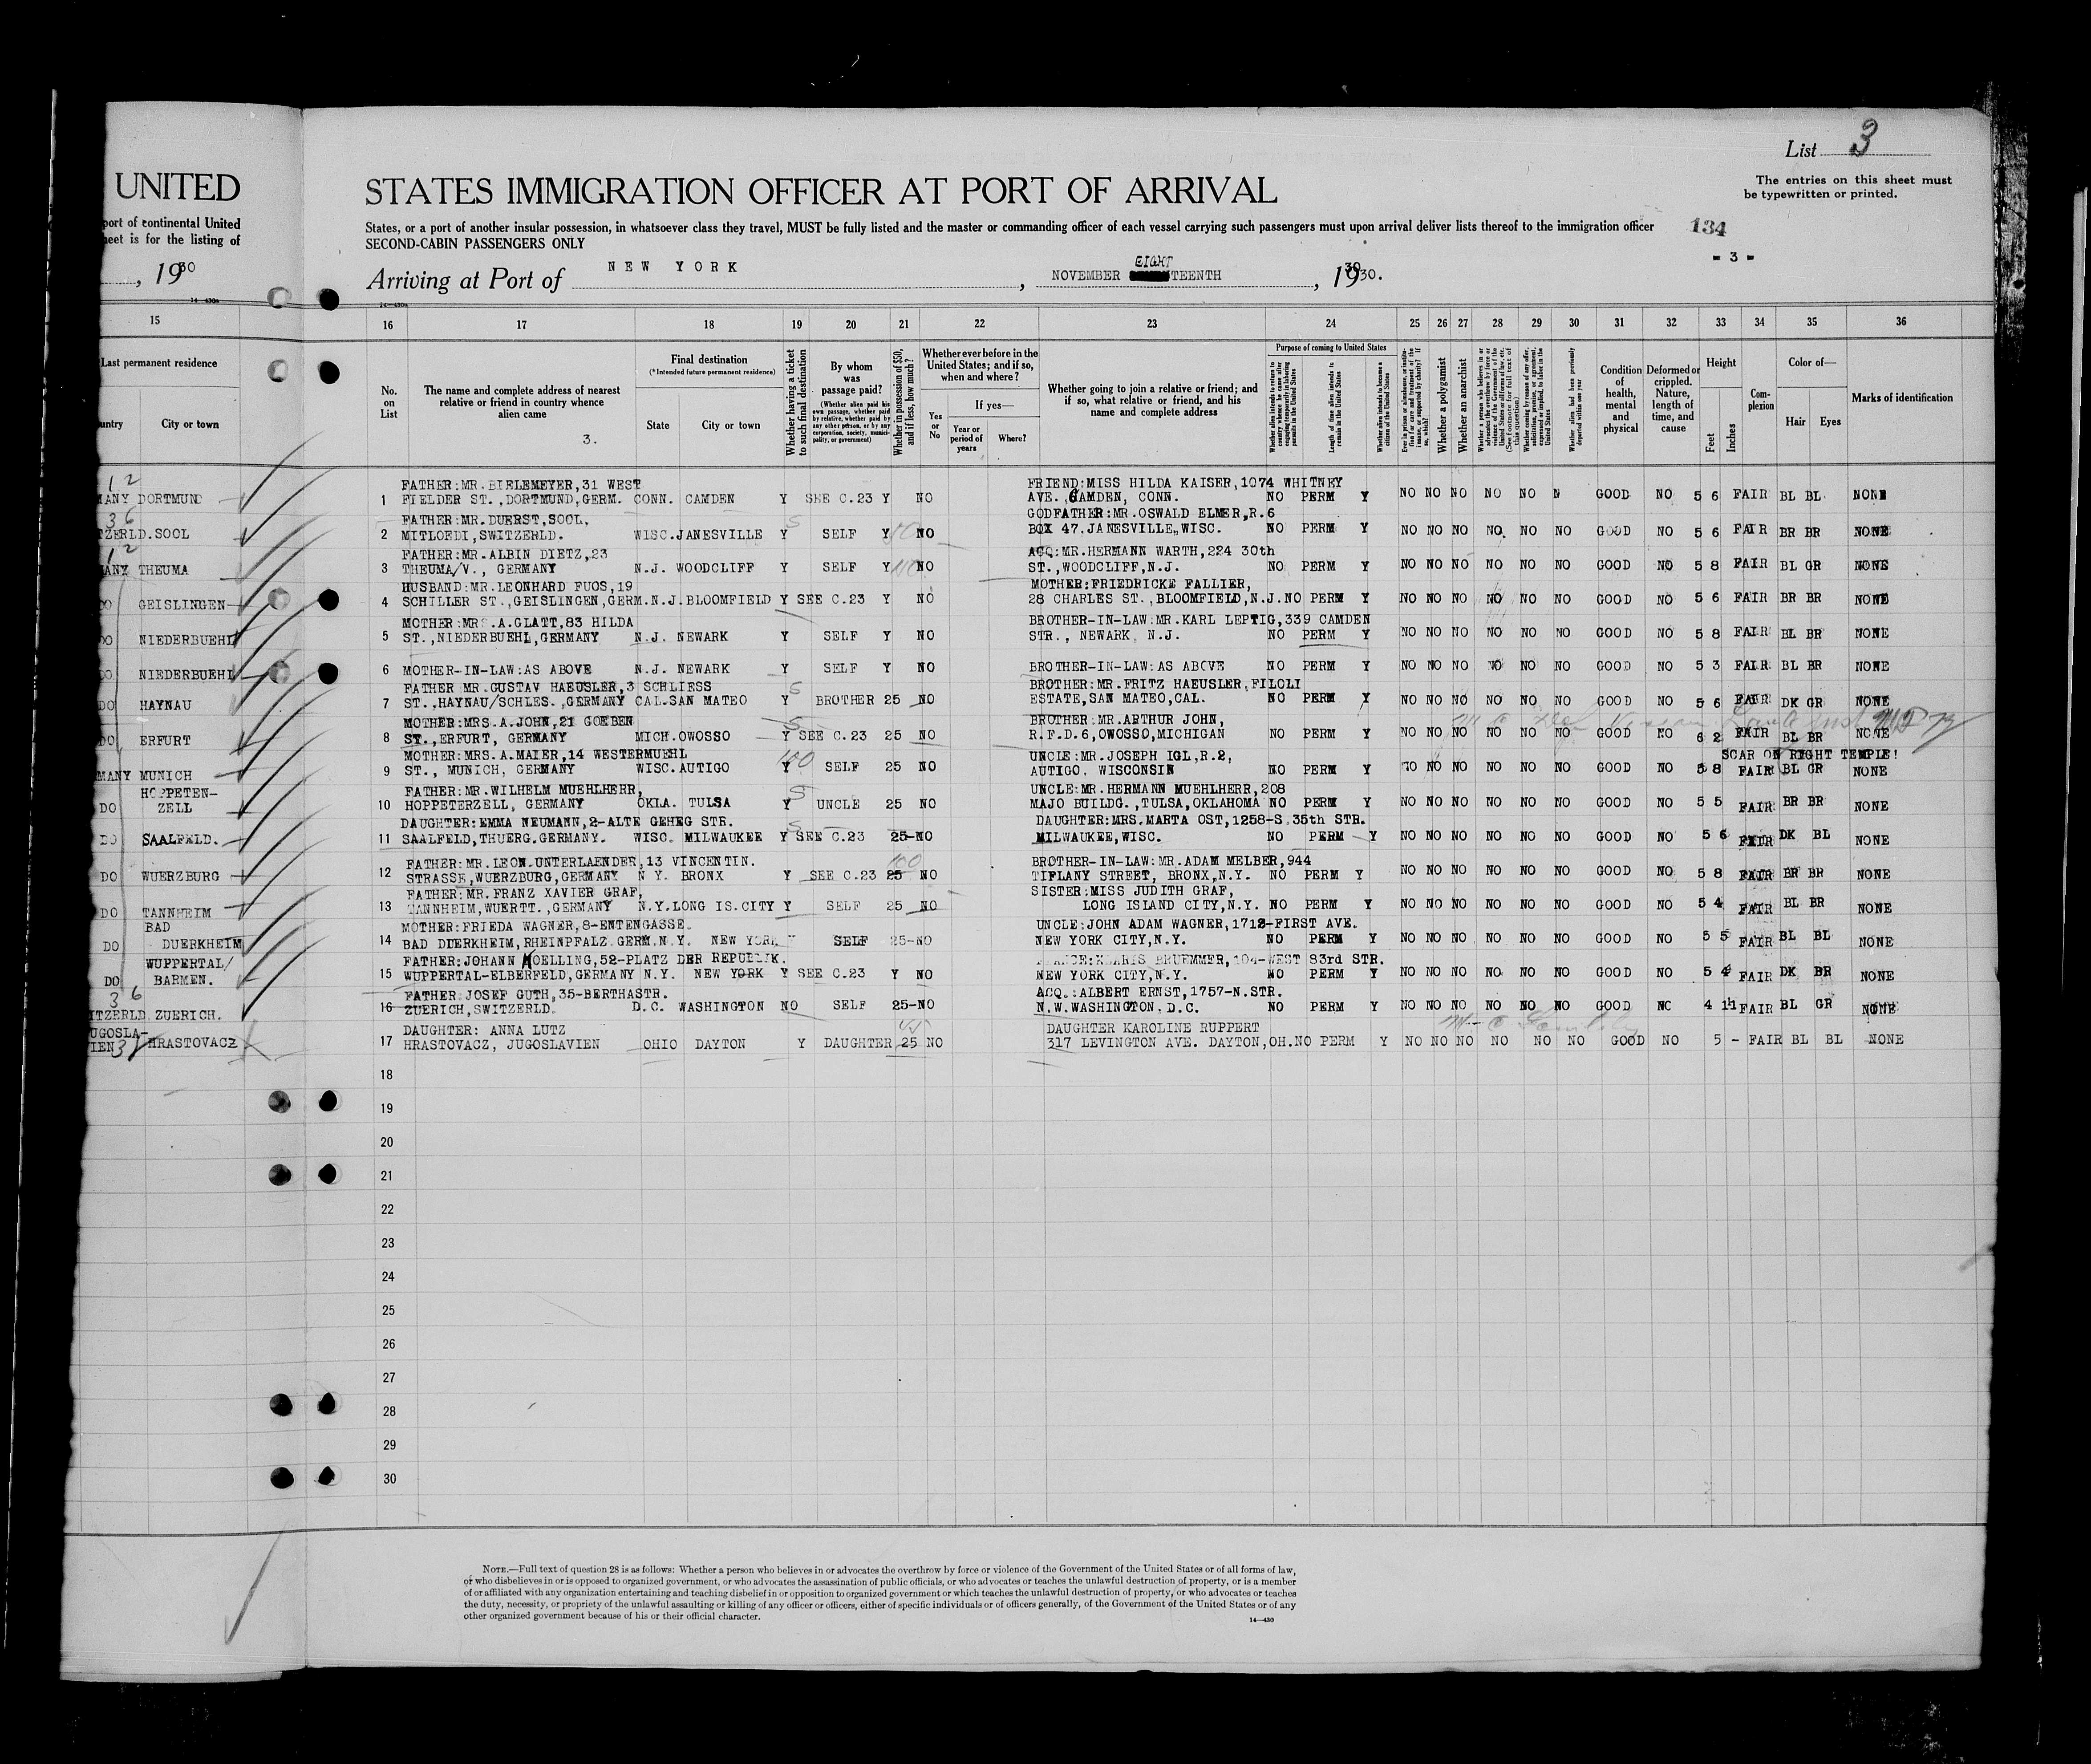 List 3
The entries on this sheet must
be typewritten or printed.
UNITED
STATES IMMIGRATION OFFICER AT PORT OF ARRIVAL
port of continental United
States, or a port of another insular possession, in whatsoever class they travel, MUST be fully listed and the master or commanding officer of each vessel carrying such passengers must upon arrival deliver lists thereof to the immigration officer
134
sheet is for the listing of
SECOND-CABIN PASSENGERS ONLY
- 3 -
, 1930
Arriving at Port of NEW YORK, NOVEMBER EIGHTTEENTH, 1930.
14-430a
15 16 17 18 19 20 21 22 23 24 25 26 27 28 29 30 31 32 33 34 35 36
Last permanent residence
Country
City or town
No. on List
The name and complete address of nearest relative or friend in country whence alien came
3.
Final destination
(*Intended future permanent residence)
State
City or town
Whether having a ticket to such final destination
By whom was passage paid?
(Whether alien paid his own passage, whether paid by relative, whether paid by any other person, or by any corporation, society, municipality, or government)
Whether in possession of $50, and if less, how much?
Whether ever before in the United States; and if so, when and where?
Yes or No
If yes—
Year or period of years
Where?
Whether going to join a relative or friend; and if so, what relative or friend, and his name and complete address
Purpose of coming to United States
Whether a polygamist
Whether an anarchist
Condition of health, mental and physical
Deformed or crippled. Nature, length of time, and cause
Height
Feet
Inches
Complexion
Color of—
Hair
Eyes
Marks of identification
MANY DORTMUND
FATHER:MR.BIELEMEYER,31 WEST
FRIEND:MISS HILDA KAISER,1074 WHITNEY
1 FIELDER ST.,DORTMUND,GERM. CONN. CAMDEN Y SEE C.23 Y NO AVE.,CAMDEN, CONN. NO PERM Y NO NO NO NO NO N GOOD NO 5 6 FAIR BL BL NONE
TZERLD.SOOL
FATHER:MR.DUERST,SOOL,
GODFATHER:MR.OSWALD ELMER,R.6
2 MITLOEDI,SWITZERLD. WISC.JANESVILLE Y SELF Y NO BOX 47.JANESVILLE,WISC. NO PERM Y NO NO NO NO NO NO GOOD NO 5 6 FAIR BR BR NONE
ANY THEUMA
FATHER:MR.ALBIN DIETZ,23
ACQ:MR.HERMANN WARTH,224 30th
3 THEUMA/V., GERMANY N.J. WOODCLIFF Y SELF Y NO ST.,WOODCLIFF,N.J. NO PERM Y NO NO NO NO NO NO GOOD NO 5 8 FAIR BL GR NONE
DO GEISLINGEN
HUSBAND:MR.LEONHARD FUOS,19
MOTHER:FRIEDRICKE FALLIER,
4 SCHILLER ST.,GEISLINGEN,GERM.N.J.BLOOMFIELD Y SEE C.23 Y NO 28 CHARLES ST.,BLOOMFIELD,N.J.NO PERM Y NO NO NO NO NO NO GOOD NO 5 6 FAIR BR BR NONE
DO NIEDERBUEHL
MOTHER:MRS.A.GLATT,83 HILDA
BROTHER-IN-LAW:MR.KARL LEPTIG,339 CAMDEN
5 ST.,NIEDERBUEHL,GERMANY N.J. NEWARK Y SELF Y NO STR., NEWARK, N.J. NO PERM Y NO NO NO NO NO NO GOOD NO 5 8 FAIR BL BR NONE
DO NIEDERBUEHL
6 MOTHER-IN-LAW:AS ABOVE N.J. NEWARK Y SELF Y NO BROTHER-IN-LAW:AS ABOVE NO PERM Y NO NO NO NO NO NO GOOD NO 5 3 FAIR BL BR NONE
DO HAYNAU
FATHER MR.GUSTAV HAEUSLER,3 SCHLIESS
BROTHER:MR.FRITZ HAEUSLER,FILOLI
7 ST.,HAYNAU/SCHLES.,GERMANY CAL.SAN MATEO Y BROTHER 25 NO ESTATE,SAN MATEO,CAL. NO PERM Y NO NO NO NO NO NO GOOD NO 5 6 FAIR DK GR NONE
DO ERFURT
MOTHER:MRS.A.JOHN,21 GOEBEN
BROTHER:MR.ARTHUR JOHN,
8 ST.,ERFURT, GERMANY MICH.OWOSSO Y SEE C.23 25 NO R.F.D.6,OWOSSO,MICHIGAN NO PERM Y NO NO NO NO NO NO GOOD NO 6 2 FAIR BL BR NONE
SCAR ON RIGHT TEMPLE!
MANY MUNICH
MOTHER:MRS.A.MAIER,14 WESTERMUEHL
UNCLE:MR.JOSEPH IGL,R.2,
9 ST., MUNICH, GERMANY WISC.AUTIGO Y SELF 25 NO AUTIGO, WISCONSIN NO PERM Y NO NO NO NO NO NO GOOD NO 5 8 FAIR BL GR NONE
DO HOPPETEN-
ZELL
FATHER:MR.WILHELM MUEHLHERR,
UNCLE:MR.HERMANN MUEHLHERR,208
10 HOPPETERZELL, GERMANY OKLA. TULSA Y UNCLE 25 NO MAJO BUILDG.,TULSA,OKLAHOMA NO PERM Y NO NO NO NO NO NO GOOD NO 5 5 FAIR BR BR NONE
DO SAALFELD.
DAUGHTER:EMMA NEUMANN,2-ALTE GEHEG STR.
DAUGHTER:MRS.MARTA OST,1258-S.35th STR.
11 SAALFELD,THUERG.GERMANY. WISC. MILWAUKEE Y SEE C.23 25-NO MILWAUKEE,WISC. NO PERM Y NO NO NO NO NO NO GOOD NO 5 6 FAIR DK BL NONE
DO WUERZBURG
FATHER:MR.LEON.UNTERLAENDER,13 VINCENTIN.
BROTHER-IN-LAW:MR.ADAM MELBER,944
12 STRASSE,WUERZBURG,GERMANY N Y. BRONX Y SEE C.23 25 NO TIFLANY STREET, BRONX,N.Y. NO PERM Y NO NO NO NO NO NO GOOD NO 5 8 FAIR BR BR NONE
DO TANNHEIM
FATHER:MR.FRANZ XAVIER GRAF,
SISTER:MISS JUDITH GRAF,
13 TANNHEIM,WUERTT.,GERMANY N.Y.LONG IS.CITY Y SELF 25 NO LONG ISLAND CITY,N.Y. NO PERM Y NO NO NO NO NO NO GOOD NO 5 4 FAIR BL BR NONE
DO BAD
DUERKHEIM
MOTHER:FRIEDA WAGNER,8-ENTENGASSE.
UNCLE:JOHN ADAM WAGNER,1712-FIRST AVE.
14 BAD DUERKHEIM,RHEINPFALZ GERM.N.Y. NEW YORK Y SELF 25-NO NEW YORK CITY,N.Y. NO PERM Y NO NO NO NO NO NO GOOD NO 5 5 FAIR BL BL NONE
DO WUPPERTAL/
BARMEN.
FATHER:JOHANN MOELLING,52-PLATZ DER REPUBLIK.
BRUEMMER, 104-WEST 83rd STR.
15 WUPPERTAL-ELBERFELD,GERMANY N.Y. NEW YORK Y SEE C.23 Y NO NEW YORK CITY,N.Y. NO PERM Y NO NO NO NO NO NO GOOD NO 5 4 FAIR DK BR NONE
ITZERLD ZUERICH.
FATHER JOSEF GUTH,35-BERTHASTR.
ACQ.:ALBERT ERNST,1757-N.STR.
16 ZUERICH,SWITZERLD. D.C. WASHINGTON NO SELF 25-NO N.W.WASHINGTON.D.C. NO PERM Y NO NO NO NO NO NO GOOD NO 4 11 FAIR BL GR NONE
JUGOSLA-
VIEN HRASTOVACZ
DAUGHTER: ANNA LUTZ
DAUGHTER KAROLINE RUPPERT
17 HRASTOVACZ, JUGOSLAVIEN OHIO DAYTON Y DAUGHTER 25 NO 317 LEVINGTON AVE. DAYTON,OH.NO PERM Y NO NO NO NO NO NO GOOD NO 5 - FAIR BL BL NONE
18
19
20
21
22
23
24
25
26
27
28
29
30
NOTE.—Full text of question 28 is as follows: Whether a person who believes in or advocates the overthrow by force or violence of the Government of the United States or of all forms of law,
or who disbelieves in or is opposed to organized government, or who advocates the assassination of public officials, or who advocates or teaches the unlawful destruction of property, or is a member
of or affiliated with any organization entertaining and teaching disbelief in or opposition to organized government or which teaches the unlawful destruction of property, or who advocates or teaches
the duty, necessity, or propriety of the unlawful assaulting or killing of any officer or officers, either of specific individuals or of officers generally, of the Government of the United States or of any
other organized government because of his or their official character.
14-430